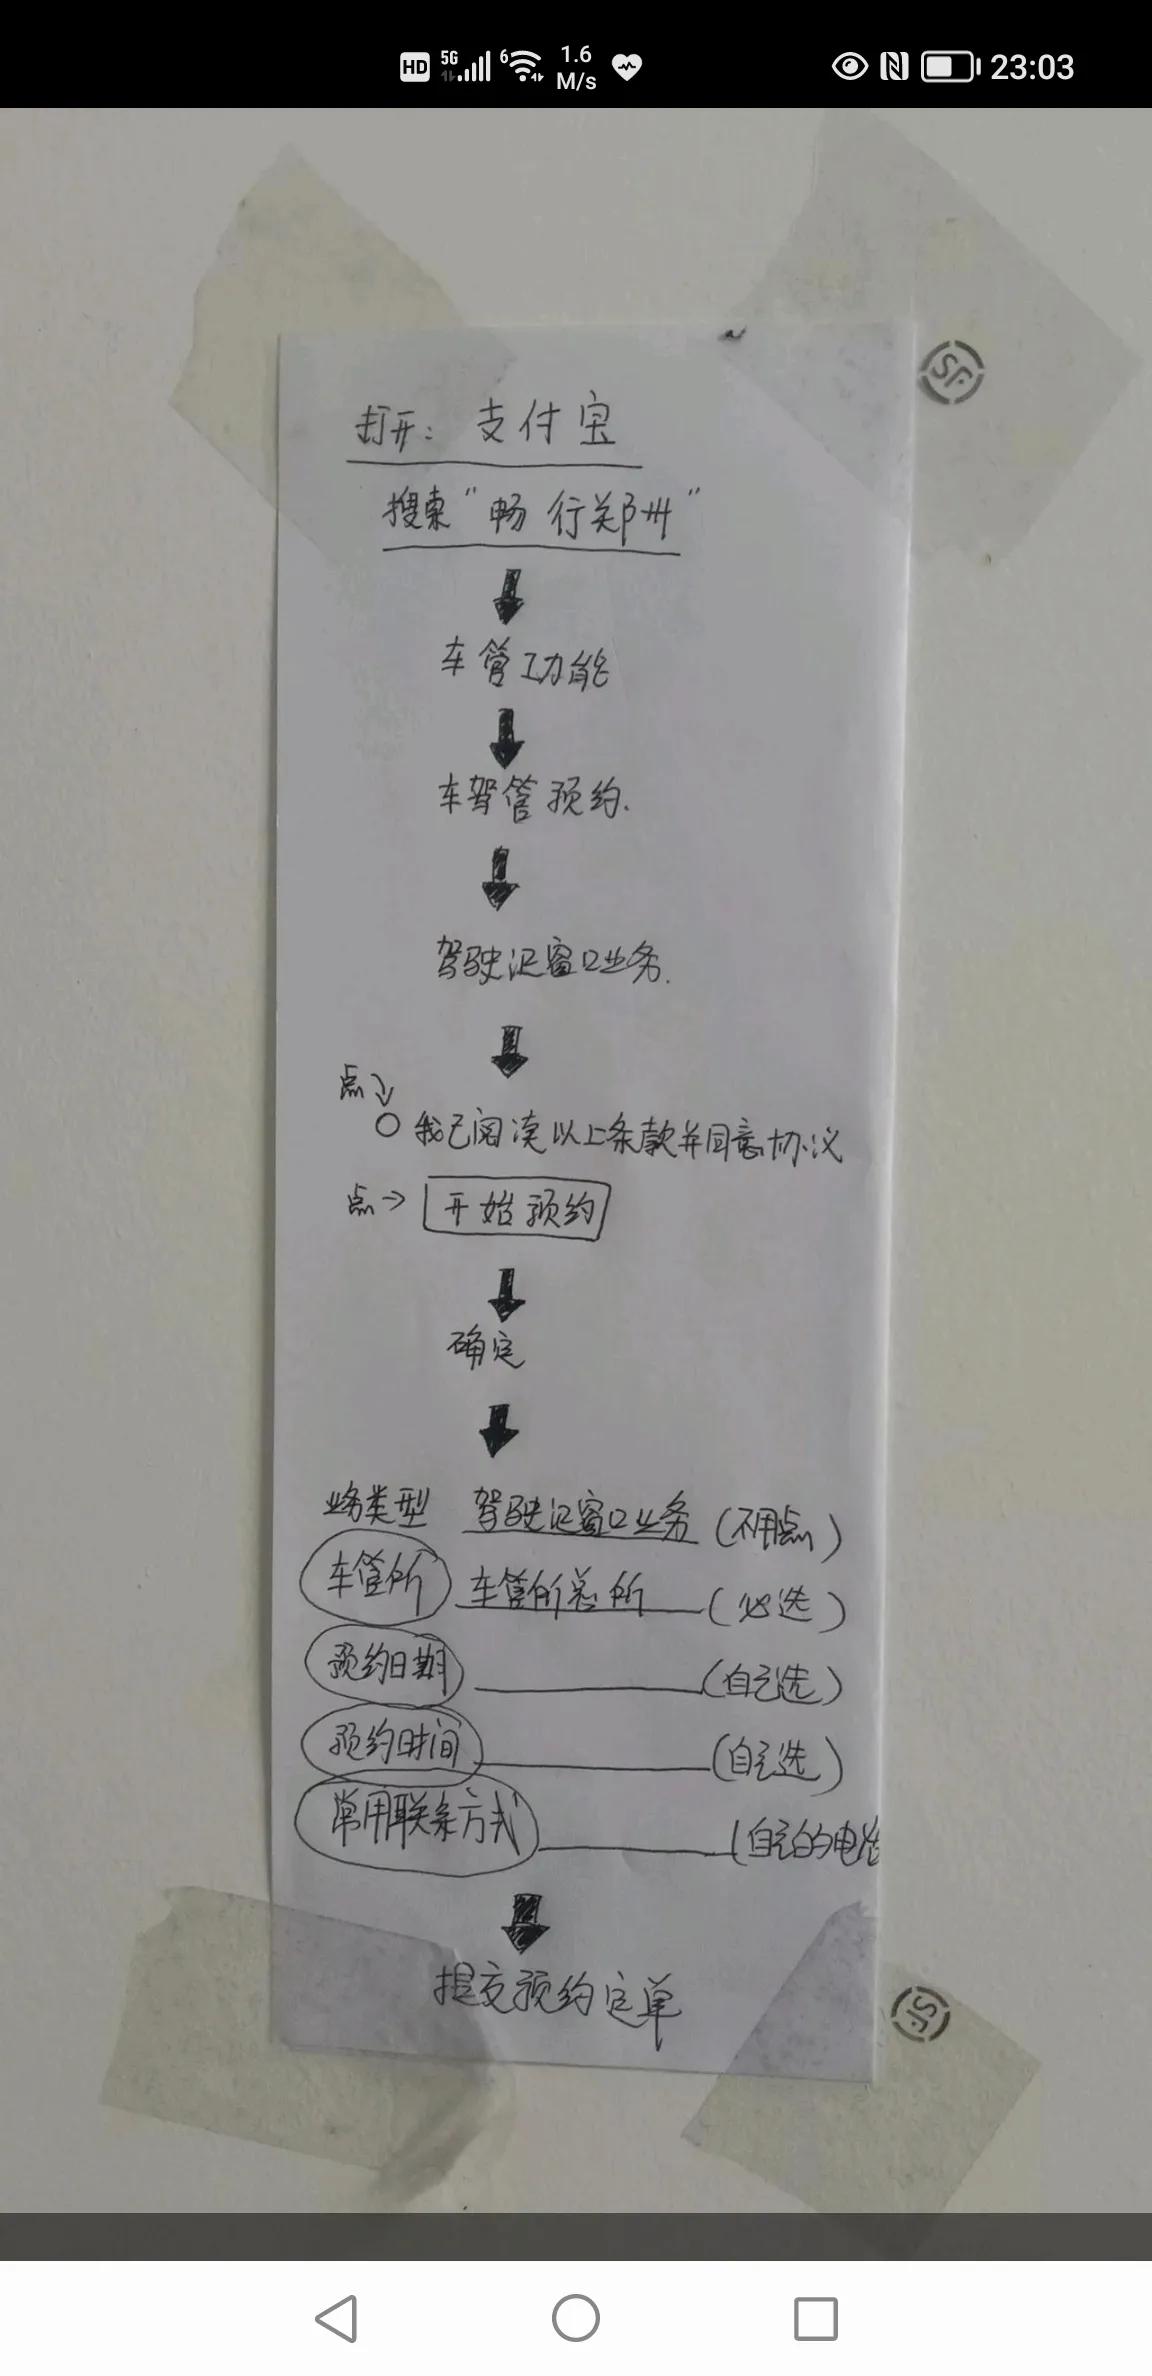 HD 5G 6 1.6 M/s 23:03
打开：支付宝
搜索“畅行郑州”
车管功能
车驾管预约.
驾驶证窗口业务.
点
我已阅读以上条款并同意协议
点→ 开始预约
确定
业务类型 驾驶证窗口业务（不用点）
车管所 车管所总所（必选）
预约日期（自己选）
预约时间（自己选）
常用联系方式（自己的电话
提交预约定单
SF
SF